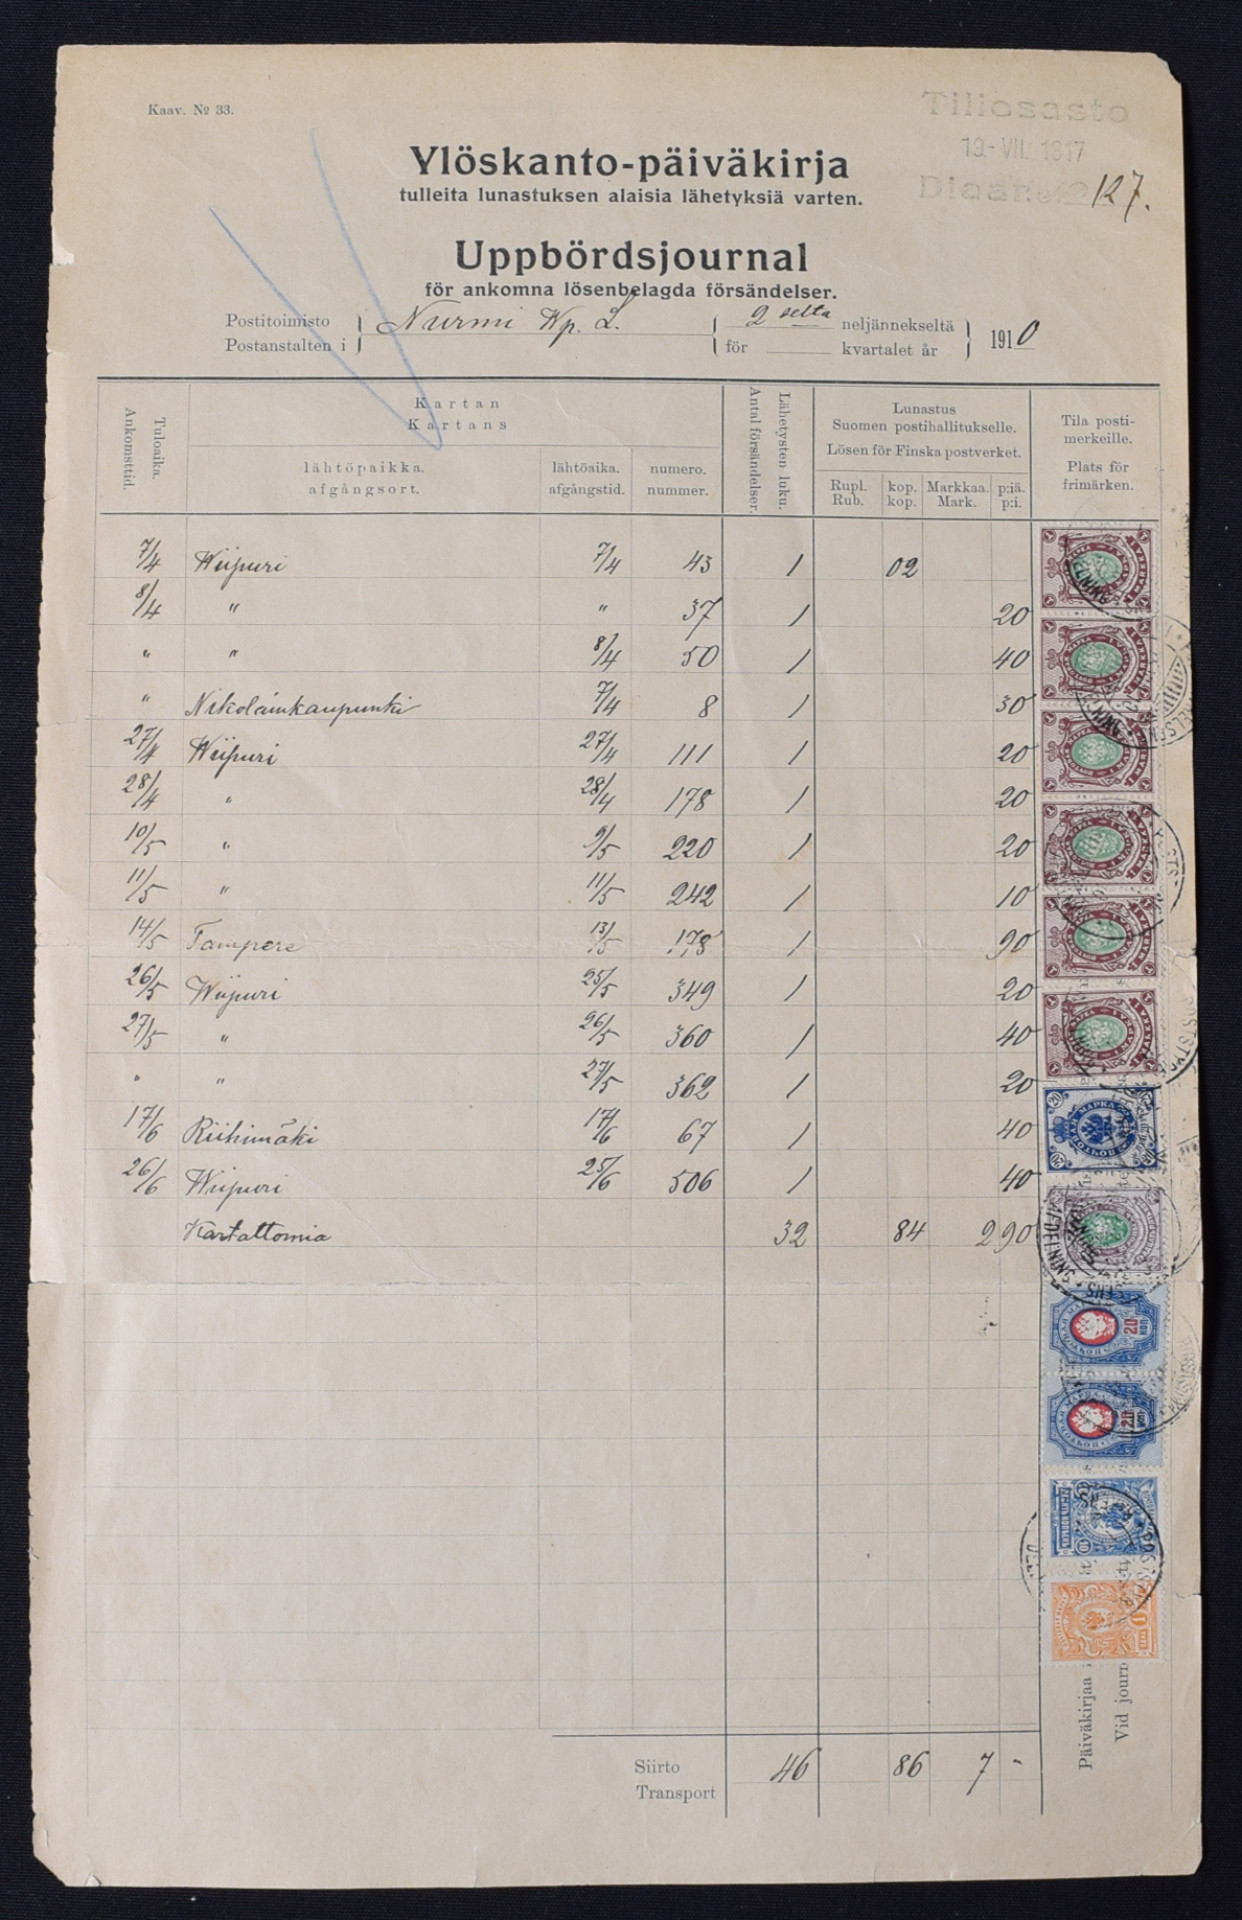 Kaav. № 33.
Tiliosasto
19-VII. 1917
Diaari 127.
Ylöskanto-päiväkirja
tulleita lunastuksen alaisia lähetyksiä varten.
Uppbördsjournal
för ankomna lösenbelagda försändelser.
Postitoimisto
Postanstalten i
Nurmi Wp. L.
2 selta neljännekseltä
för kvartalet år
1910
Tuloaika.
Ankomsttid.
Kartan
Kartans
lähtöpaikka.
afgångsort.
lähtöaika.
afgångstid.
numero.
nummer.
Lähetysten luku.
Antal försändelser.
Lunastus
Suomen postihallitukselle.
Lösen för Finska postverket.
Rupl.
Rub.
kop.
kop.
Markkaa.
Mark.
p:iä.
p:i.
Tila posti-
merkeille.
Plats för
frimärken.
7/4 Wiipuri 7/4 43 1 02
8/4 " " 37 1 20
" " 8/4 50 1 40
" Nikolainkaupunki 7/4 8 1 30
27/4 Wiipuri 27/4 111 1 20
28/4 " 28/4 178 1 20
10/5 " 9/5 220 1 20
11/5 " 11/5 242 1 10
14/5 Tampere 13/5 178 1 90
26/5 Wiipuri 25/5 349 1 20
27/5 " 26/5 360 1 40
" " 27/5 362 1 20
17/6 Riihimäki 17/6 67 1 40
26/6 Wiipuri 25/6 506 1 40
Kartattomia 32 84 2 90
Siirto
Transport
46 86 7 -
Päiväkirjaa
Vid journ